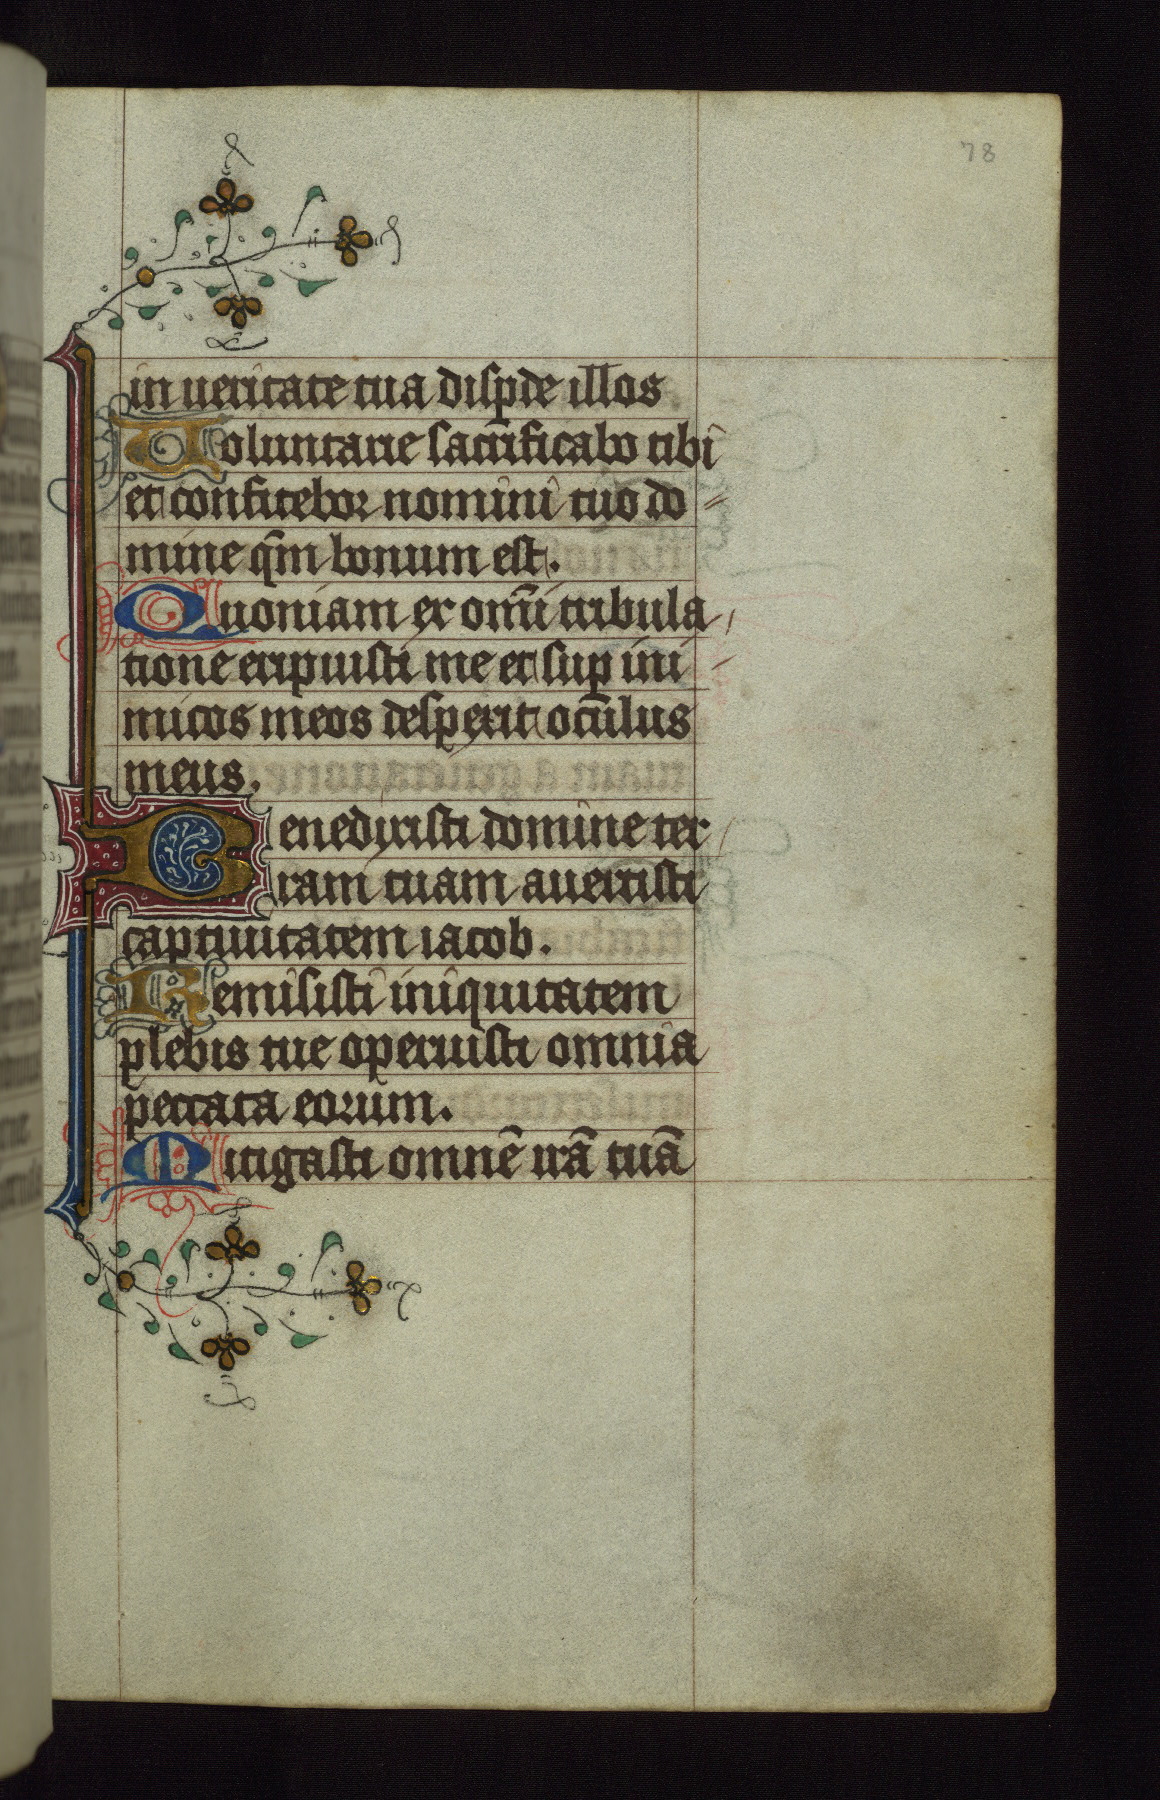 78
in veritate tua disp̱de illos
Voluntarie sacrificabo tibi
et confitebor nomini tuo do
mine qm̄ bonum est.
Quoniam ex om̄i tribula
tione eripuisti me et sup̱ ini
micos meos despexit oculus
meus.
Benedixisti domine ter
ram tuam avertisti
captivitatem iacob.
Remisisti iniquitatem
plebis tue operuisti omnia
peccata eorum.
Mitigasti omnē irā tuā